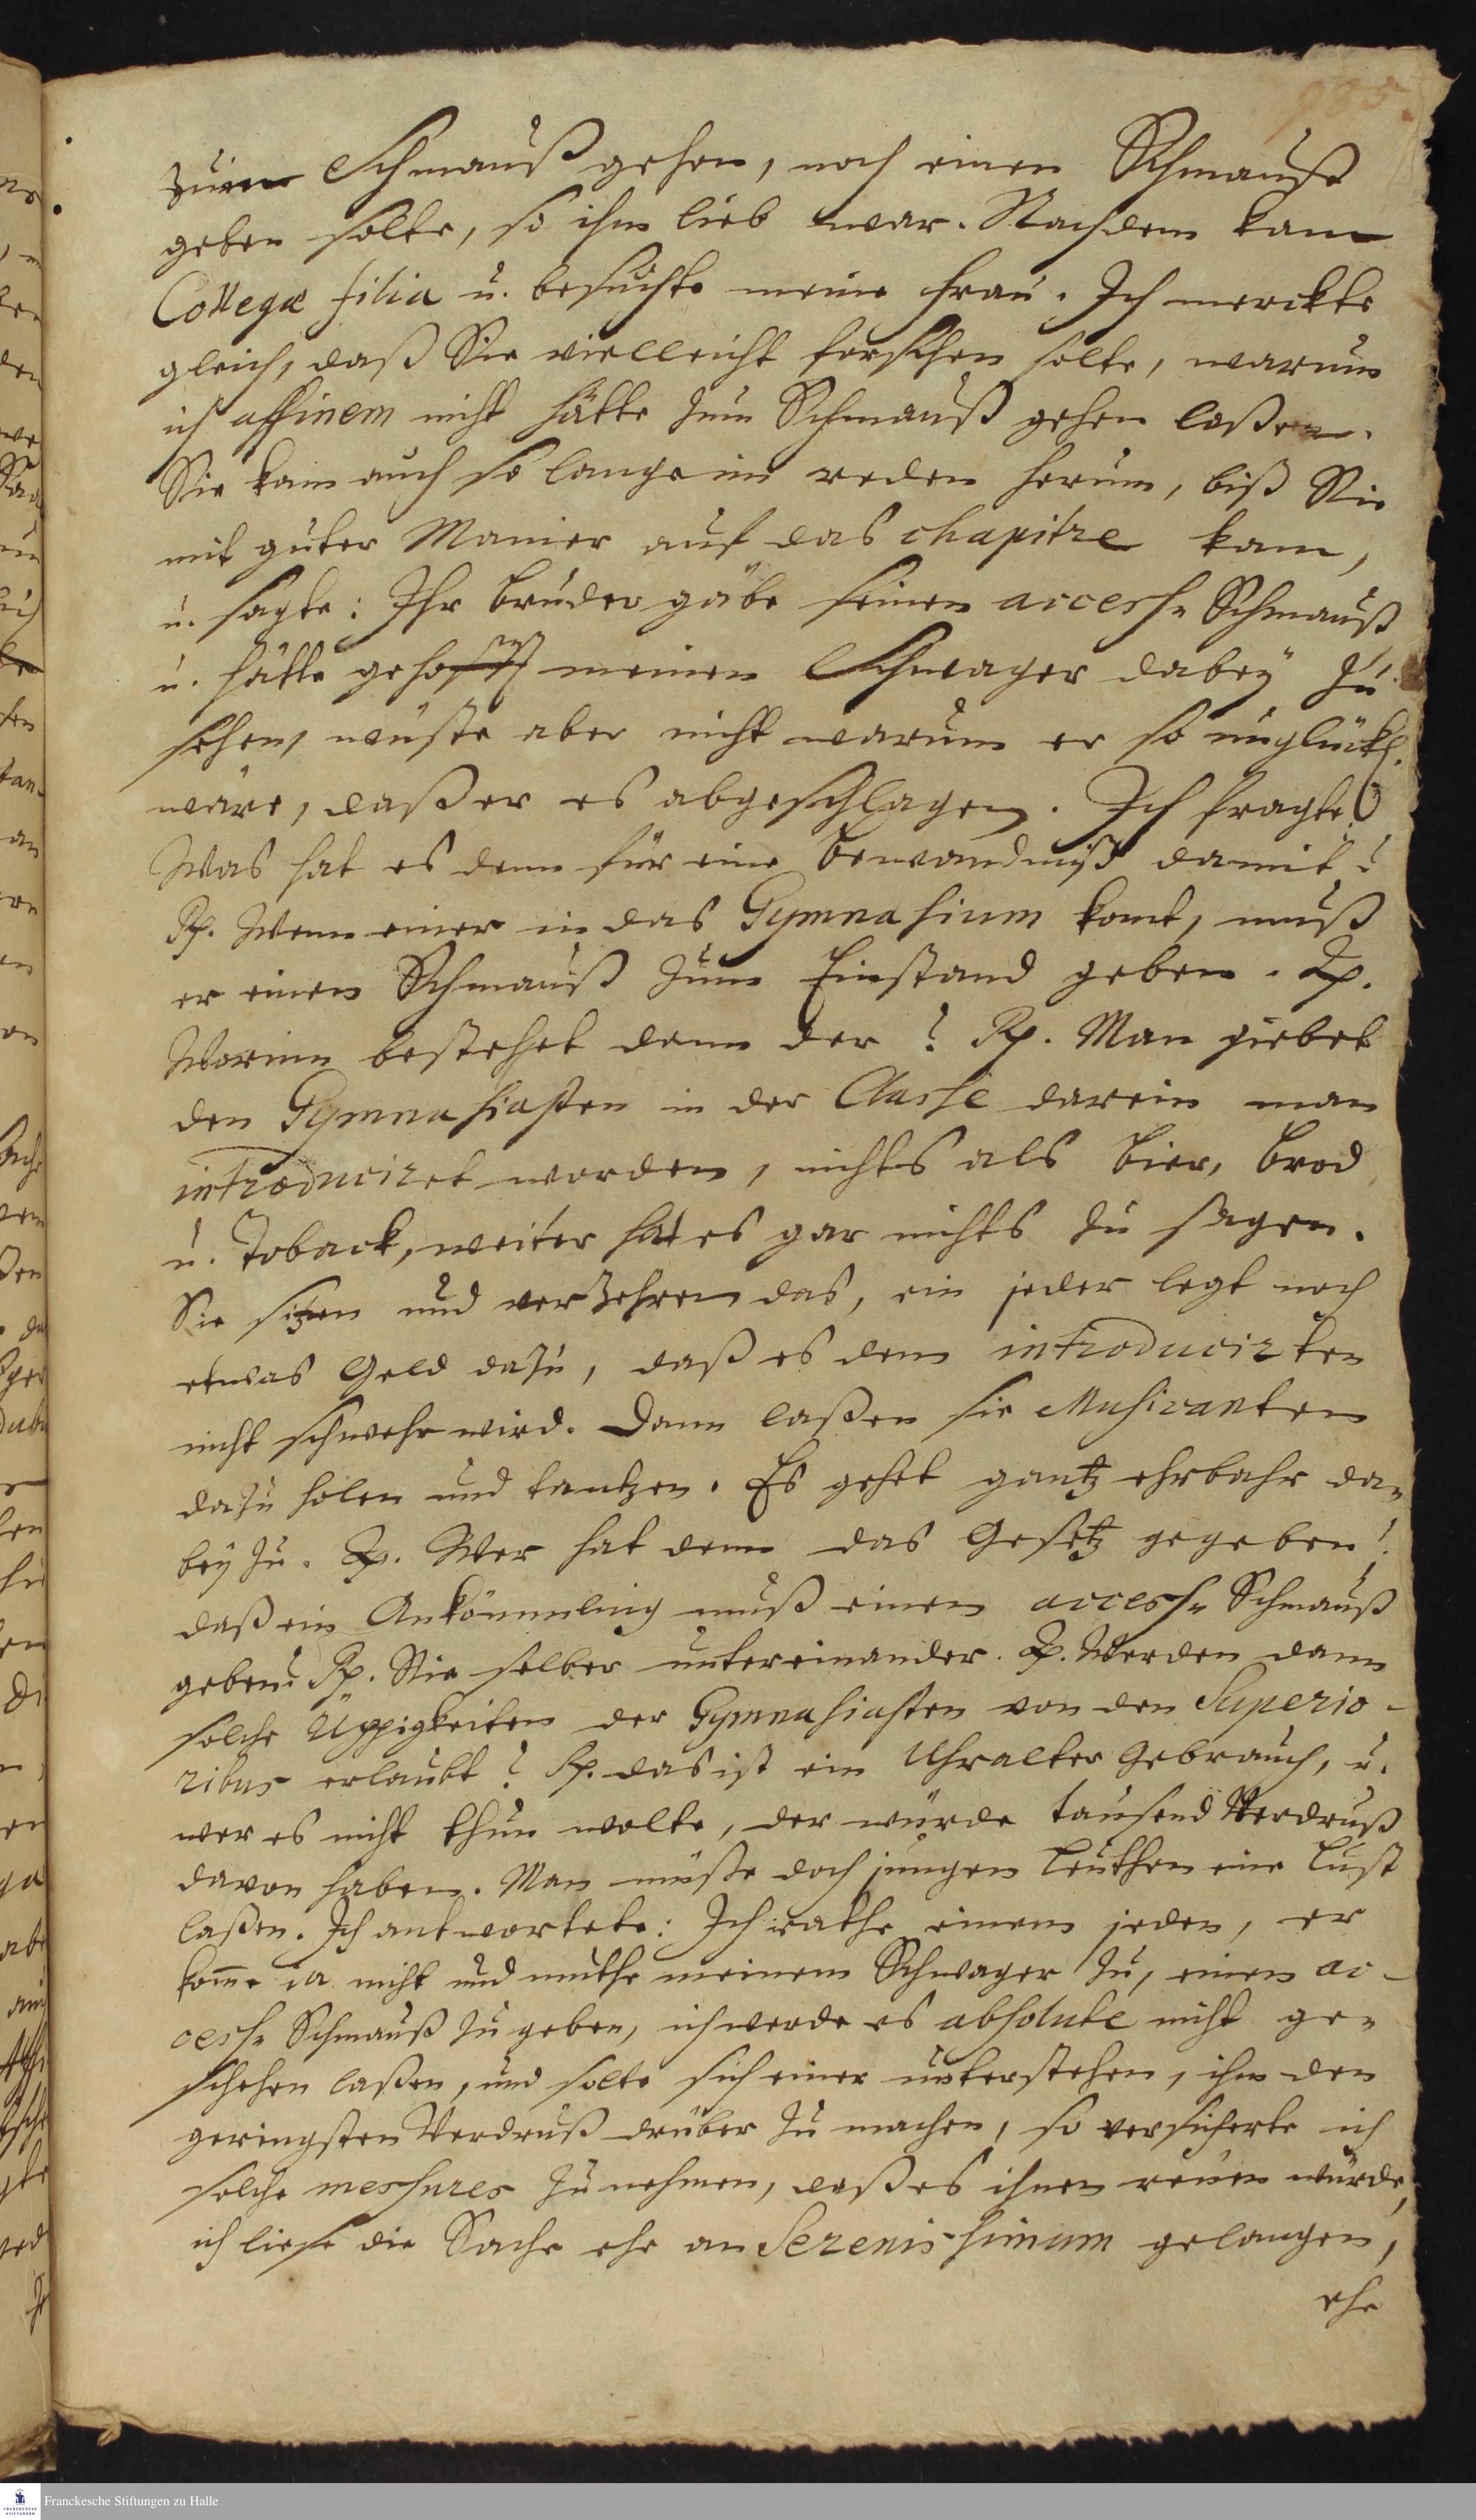 985.
zum Schmauß gehen, noch einen Schmauß
geben solte, so ihm lieb war. Nachdem kam
Collegæ filia u. besuchte meine Frau. Ich merckte
gleich, daß Sie vielleicht forschen solte, warum
ich affinem nicht hätte zum Schmauß gehen laßen.
Sie kam auch so lange im reden herum, biß Sie
mit guter Manier auf das chapitre kam,
u. sagte: Ihr Bruder gäbe seinen access- Schmauß
u. hätte gehofft meinen Schwager dabey zu
sehen, wüste aber nicht warum er so unglückl.
wäre, daß er es abgeschlagen. Ich fragte:
Was hat es denn für eine Bewandniß damit?
Rp. Wenn einer in das Gymnasium komt, muß
er einen Schmauß zum Einstand geben. Qp.
Worinn bestehet denn der? Rp. Man giebet
den Gymnasiasten in der Classe darein man
introduciret worden, nichts als Bier, Brod
u. Toback, weiter hat es gar nichts zu sagen.
Sie sitzen und verzehren das, ein jeder legt noch
etwas Geld dazu, daß es dem introducirten
nicht schwehr wird. Dann laßen sie Musicanten
dazu holen und tantzen. Es gehet gantz ehrbahr da-
bey zu. Qp. Wer hat denn das Gesetz gegeben!
daß ein Ankömmling muß einen access- Schmauß
geben? Rp. Sie selber untereinander. Qp. Werden dann
solche Üppigkeiten der Gymnasiasten von den Superio-
ribus erlaubt? Rp. das ist ein Uhralter Gebrauch, u.
wer es nicht thun wolte, der würde tausend Verdruß
davon haben. Man müße doch jungen Leuthen eine Lust
laßen. Ich antwortete: Ich rathe einem jeden, er
kom̅e ia nicht und muthe meinem Schwager zu, einen ac-
cess- Schmauß zu geben, ich werde es absolute nicht ge-
schehen laßen, und solte sich einer unterstehen, ihm den
geringsten Verdruß drüber zu machen, so versicherte ich
solche messures zu nehmen, daß es ihnen reuen würde,
ich ließe die Sache ehe an Serenissimum gelangen,
ehe
Franckesche Stiftungen zu Halle